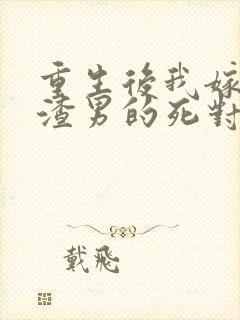 重生後我嫁
渣男的死對
戴飛